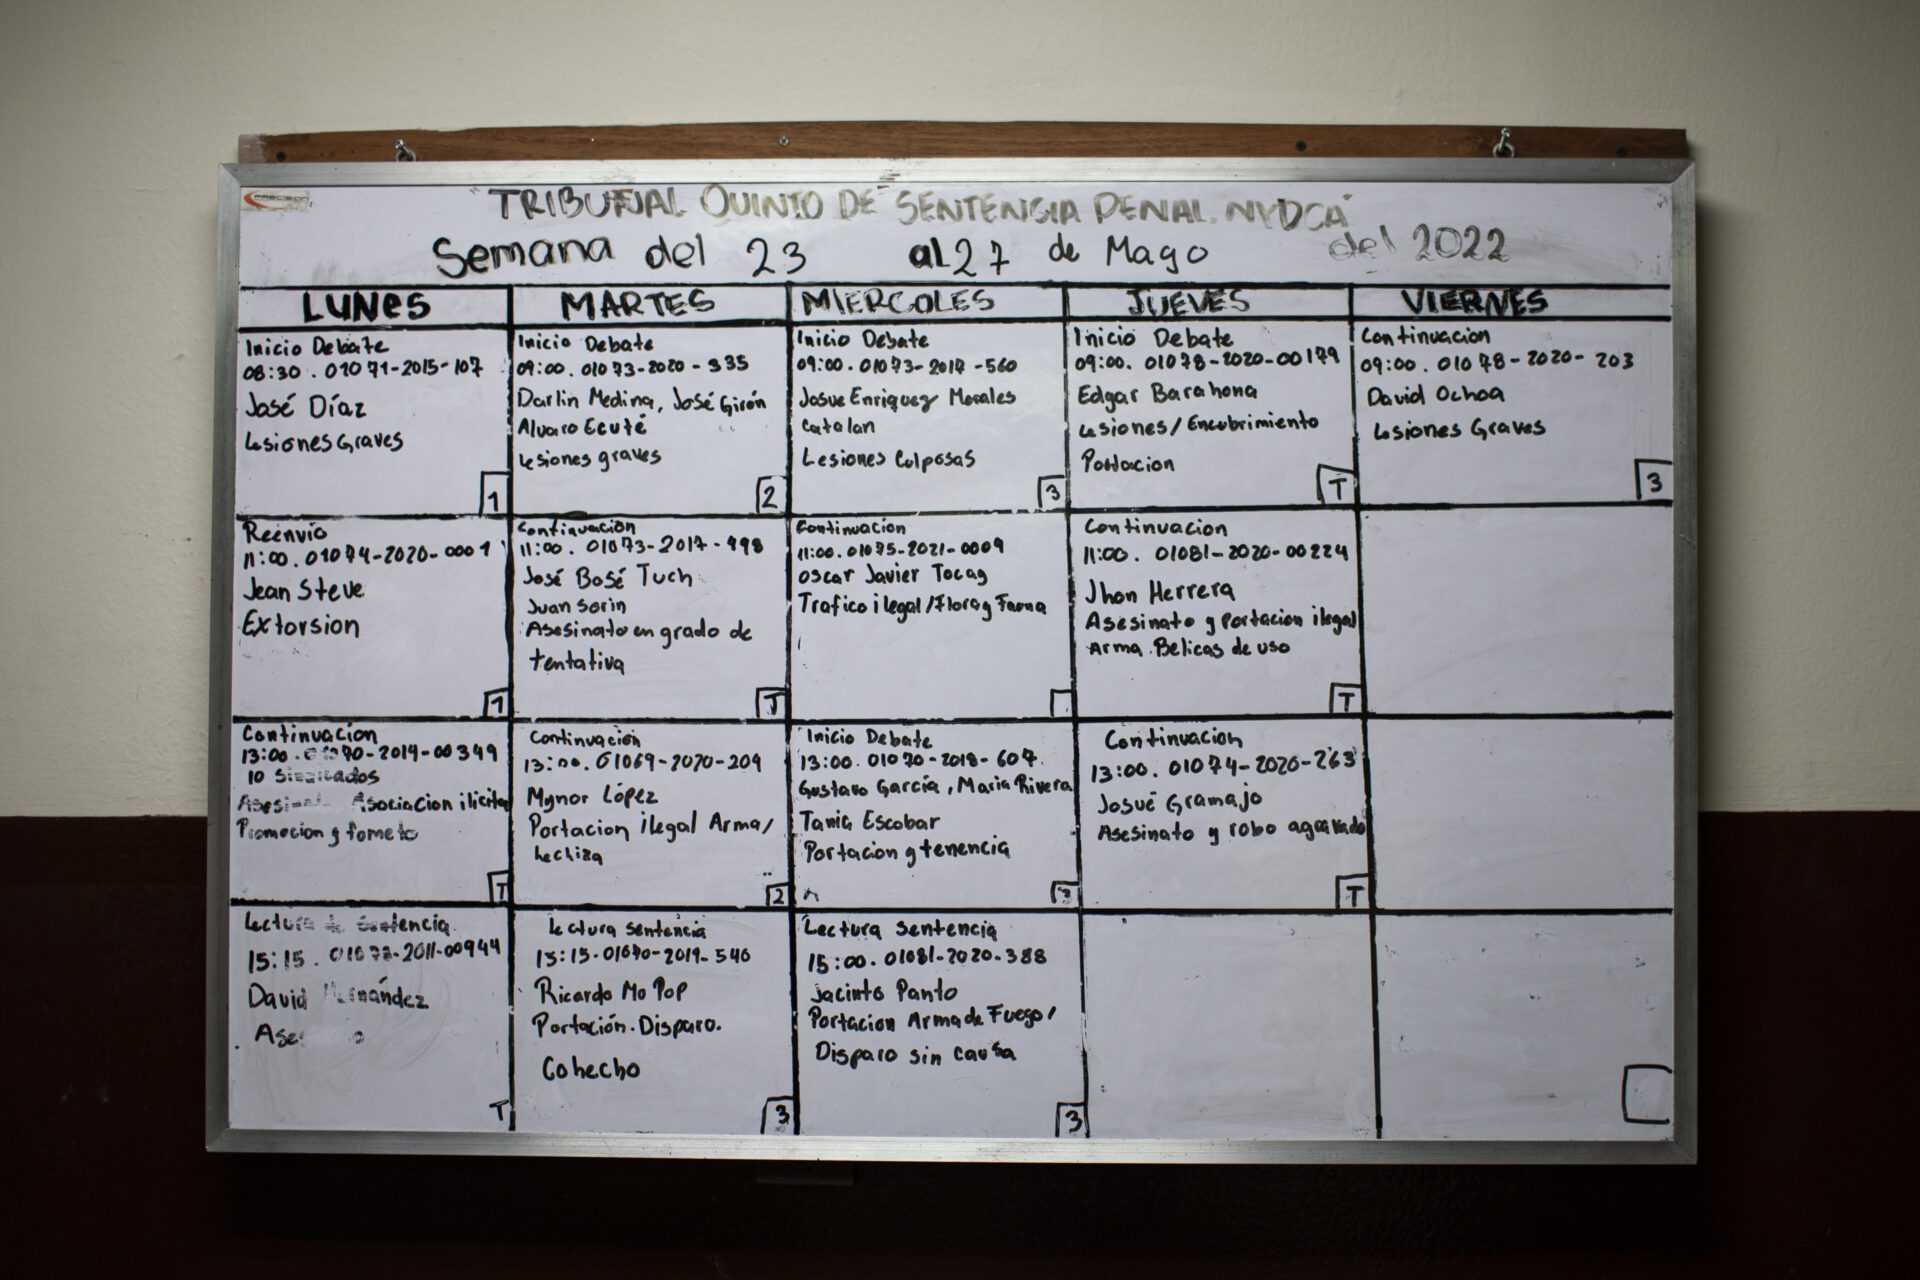 PRECISION
"TRIBUNAL QUINTO DE SENTENCIA PENAL. NYDCA"
Semana del 23 al 27 de Mayo del 2022
LUNES
MARTES
MIERCOLES
JUEVES
VIERNES
Inicio Debate
08:30 . 01071-2015-107
José Díaz
Lesiones Graves
1
Inicio Debate
09:00. 01073-2020-335
Darlin Medina, José Girón
Alvaro Ecuté
Lesiones graves
2
Inicio Debate
09:00. 01073-2017-560
Josue Enriquez Morales
Catalan
Lesiones Culposas
3
Inicio Debate
09:00. 01078-2020-00179
Edgar Barahona
Lesiones/Encubrimiento
Portacion
T
Continuacion
09:00. 01078-2020-203
David Ochoa
Lesiones Graves
3
Reenvío
11:00. 01074-2020-0001
Jean Steve
Extorsion
1
Continuación
11:00. 01073-2017-998
José Bosé Tuch
Juan Sorin
Asesinato en grado de
tentativa
T
Continuacion
11:00. 01075-2021-0009
Oscar Javier Tocay
Trafico ilegal/Flora y Fauna
Continuacion
11:00. 01081-2020-00224
Jhon Herrera
Asesinato y portacion ilegal
Arma. Belicas de uso
T
Continuacion
13:00. 01070-2014-00349
10 Sindicados
Asociacion ilicita
Promocion y fometo
T
Continuación
13:00. 01069-2020-209
Mynor López
Portacion ilegal Arma/
hechiza
2
Inicio Debate
13:00. 01070-2018-607.
Gustavo García, Maria Rivera
Tania Escobar
Portacion y tenencia
3
Continuacion
13:00. 01074-2020-263
Josué Gramajo
Asesinato y robo agravado
T
Lectura de Sentencia
15:15. -2011-00944
David Hernández
T
Lectura sentencia
15:15. 01070-2019-546
Ricardo Mo Pop
Portación. Disparo.
Cohecho
3
Lectura Sentencia
15:00. 01081-2020-388
Jacinto Panto
Portacion Arma de Fuego/
Disparo sin causa
3